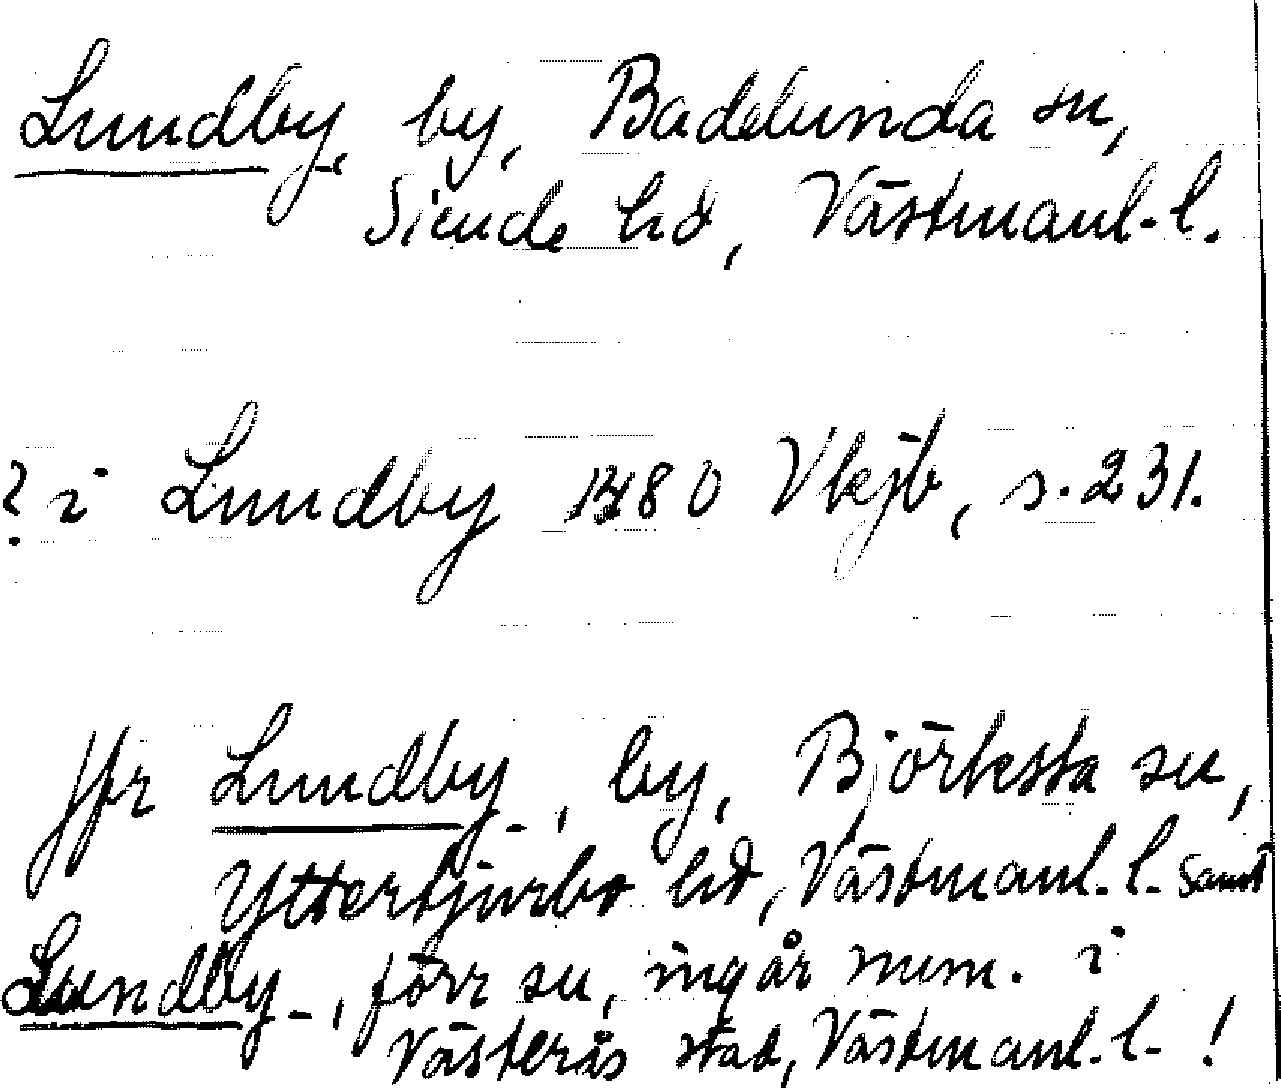 Lundby, by, Badelunda sn,
Siende hd, Västmanl. l.
? i Lundby 1480 Vkjb, s. 231.
Jfr Lundby, by, Björksta sn,
Yttertjurbo hd, Västmanl. l. samt
Lundby, förr sn, ingår num. i
Västerås stad, Västmanl. l. !